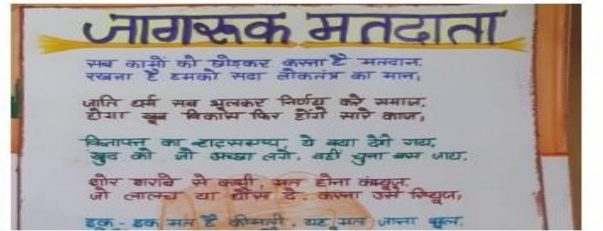 जागरूक मतदाता
सब कामों को छोड़कर करना है मतदान,
रखना है हमको सदा लोकतंत्र का मान,
जाति धर्म सब भूलकर निर्णय करे समाज,
होगा खूब विकास फिर होंगे सारे काज,
का ये क्या देंगे राय,
खुद को जो अच्छा लगे, वही चुना बस जाय,
शोर शराबे से कभी, मत होना कंफ्यूज,
जो लालच या धौंस दे, करना उसे रिफ्यूज,
इक - इक मत है कीमती, यह मत जाना भूल,